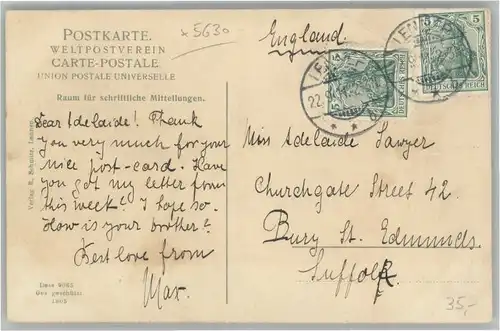 x 5630
POSTKARTE.
WELTPOSTVEREIN
CARTE-POSTALE
UNION POSTALE UNIVERSELLE
Raum für schriftliche Mitteilungen.
Dear Adelaide! Thank
you very much for your
nice post-card. Have
you got my letter from
this week? I hope so.
How is your brother?
Best love from
Max.
Dess 9063
Ges. geschützt
1905
England.
5
DEUTSCHES REICH
5
DEUTSCHES REICH
LENNEP
22
Miss Adelaide Sawyer
Churchgate Street 42.
Bury St. Edmunds
Suffolk
35,-